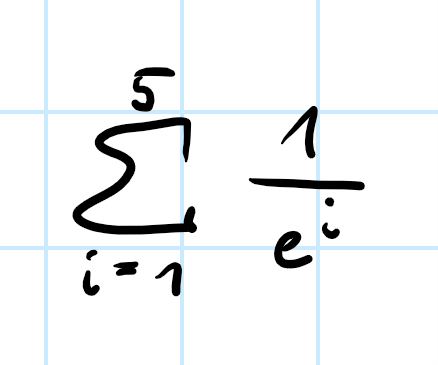 \sum_{i=1}^{5} \frac{1}{e^i}